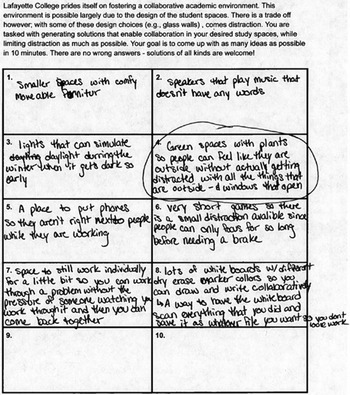 Lafayette College prides itself on fostering a collaborative academic environment. This
environment is possible largely due to the design of the student spaces. There is a trade off
however, with some of these design choices (e.g., glass walls) , comes distraction. You are
tasked with generating solutions that enable collaboration in your desired study spaces, while
limiting distraction as much as possible. Your goal is to come up with as many ideas as possible
in 10 minutes. There are no wrong answers - solutions of all kinds are welcome!
1.
Smaller spaces with comfy
moveable furnitur
2.
speakers that play music that
doesn't have any words
3. lights that can simulate
daylight durring the
winter when it gets dark so
early
4. Green spaces with plants
so people can feel like they are
outside without actually getting
distracted with all the things that
are outside - d windows that open
5. A place to put phones
so they aren't right next to people
while they are working
6. very short games so there
is a small distraction avalible since
people can only focus for so long
before needing a brake
7. space to still work individually
for a little bit so you can work
through a problem without the
pressure of someone watching you
work through it and then you can
come back together
8. lots of white boards w/ different
dry erase marker collors so you
can draw and write collaboratively
↳ A way to have the whiteboard
scan everything that you did and
save it as whatever file you want so you dont
loose work
9.
10.